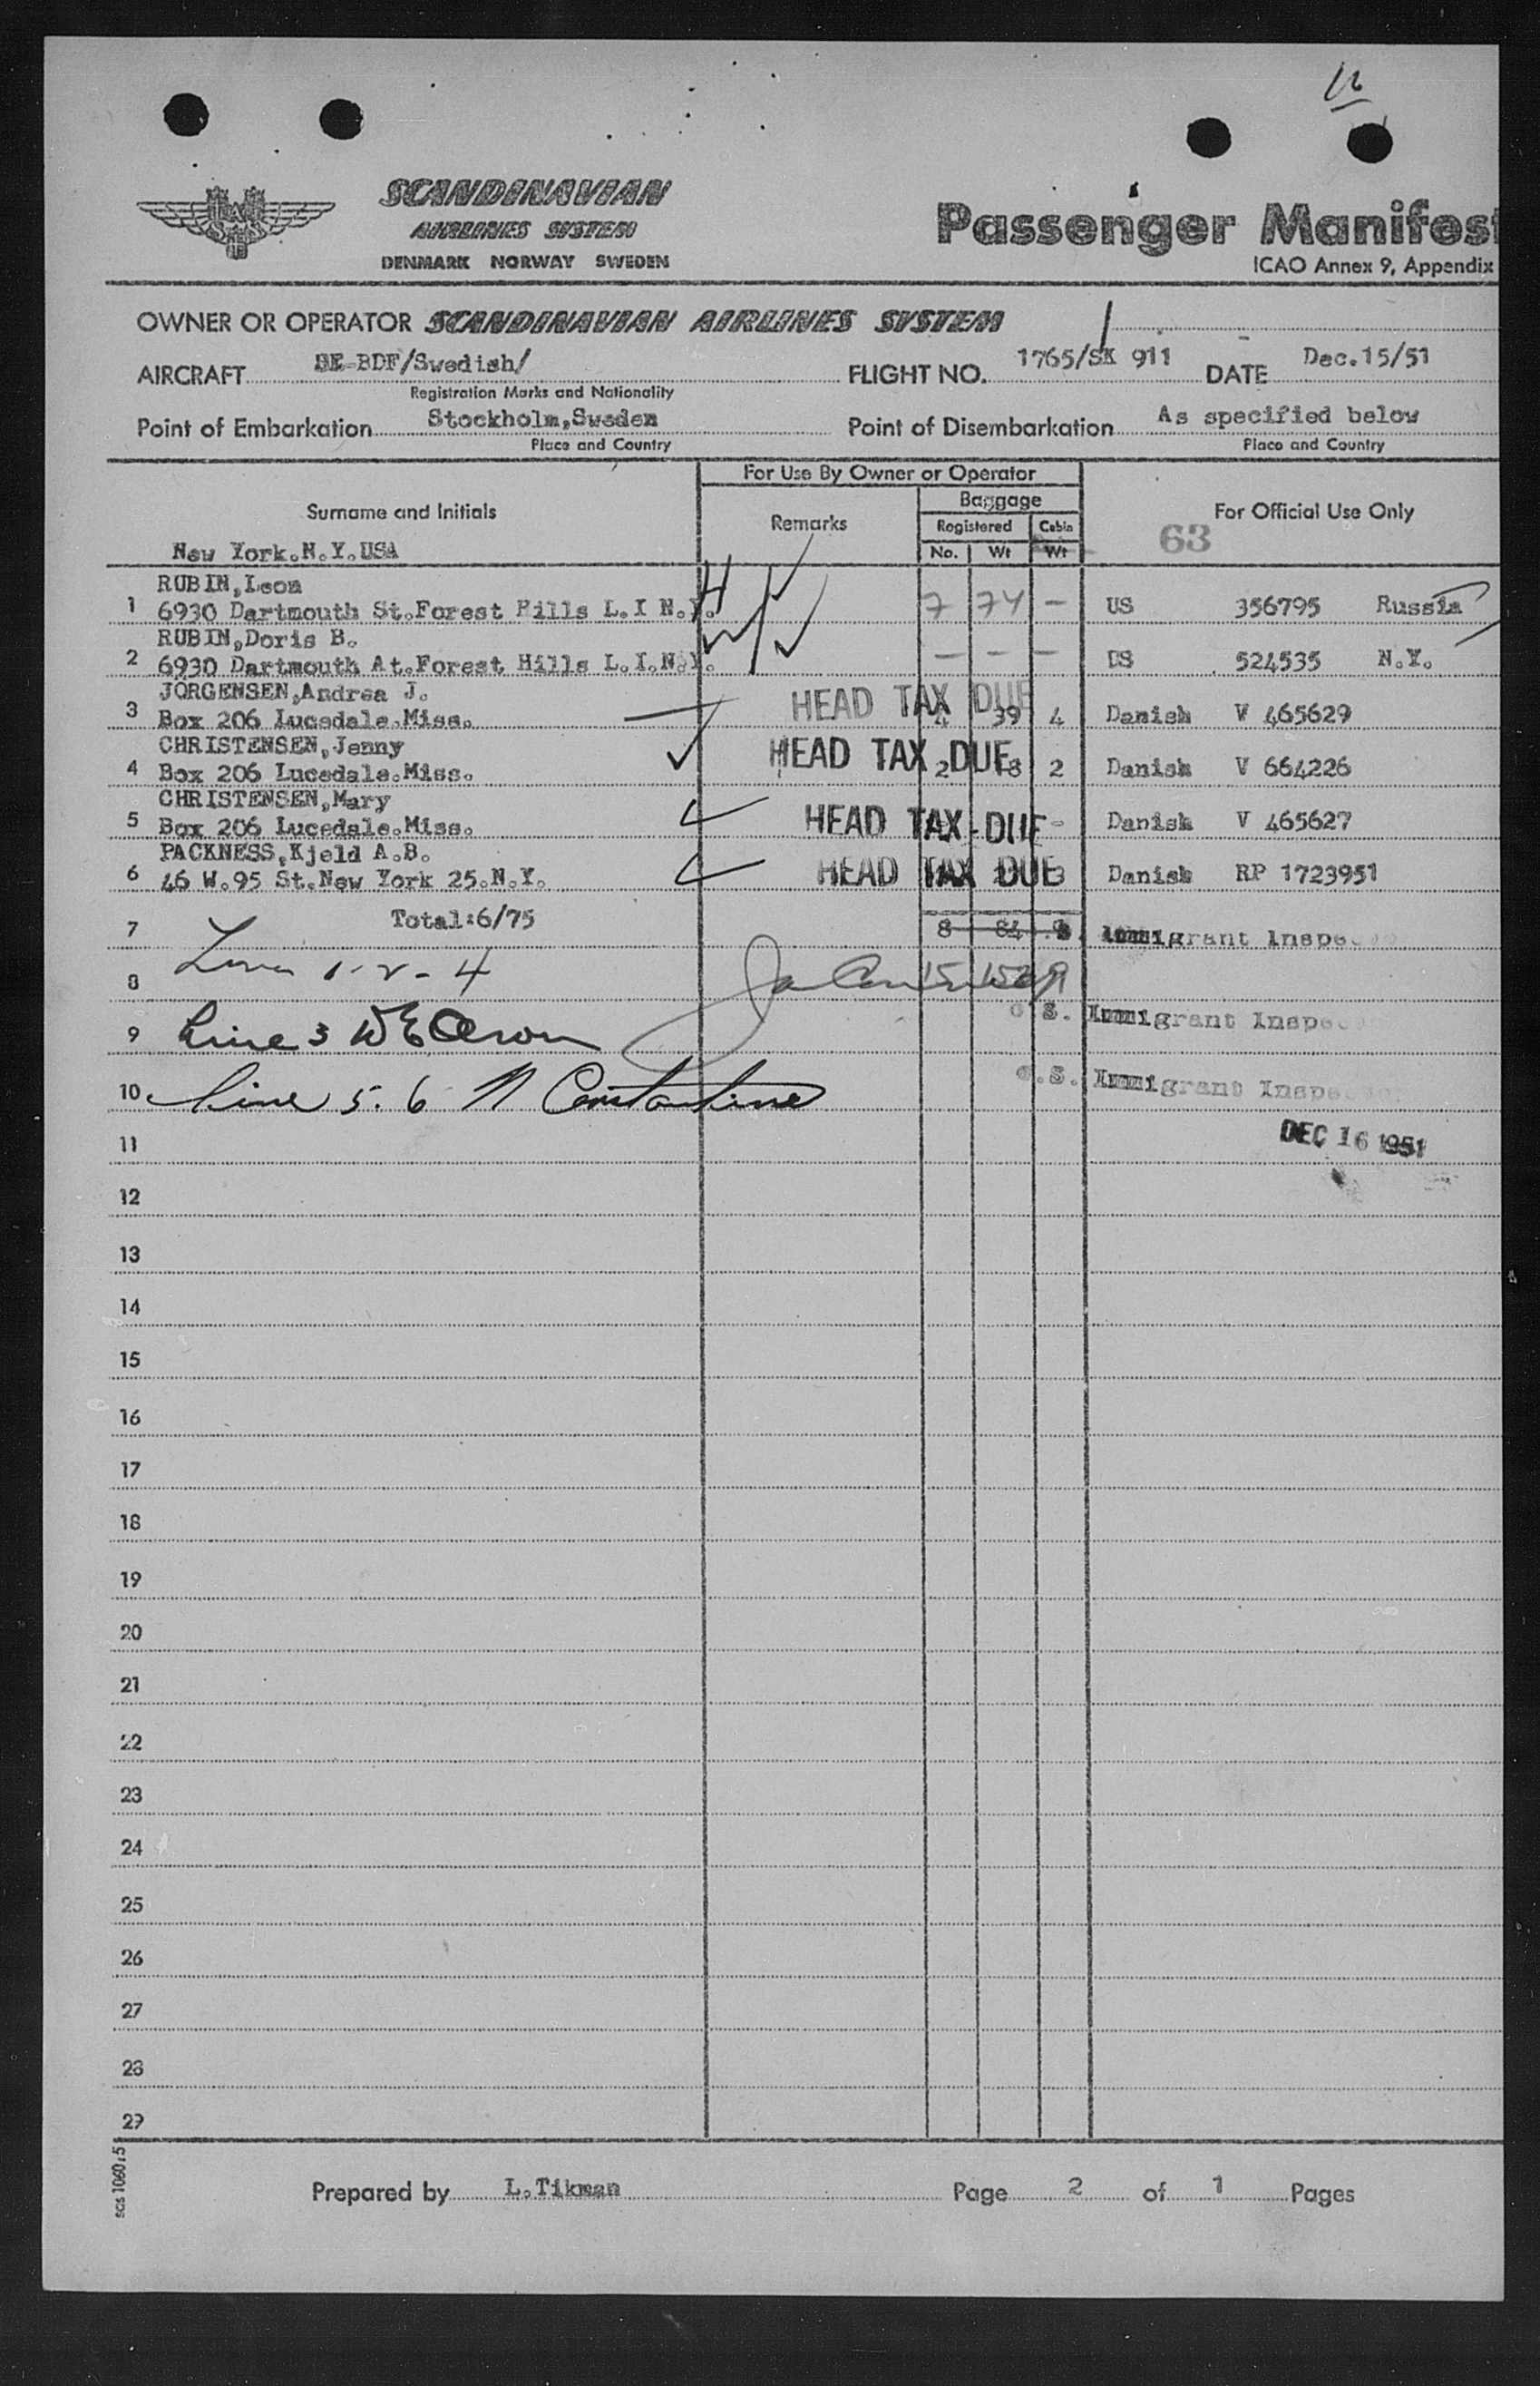 SCANDINAVIAN
AIRLINES SYSTEM
DENMARK NORWAY SWEDEN
Passenger Manifest
ICAO Annex 9, Appendix
OWNER OR OPERATOR SCANDINAVIAN AIRLINES SYSTEM
AIRCRAFT SE-BDF/Swedish/ FLIGHT NO. 1765/SK 911 DATE Dec.15/51
Registration Marks and Nationality
Point of Embarkation Stockholm,Sweden Point of Disembarkation As specified below
Place and Country Place and Country
For Use By Owner or Operator
Surname and Initials Remarks Baggage For Official Use Only
Registered Cabin
No. Wt Wt
63
New York.N.Y.USA
RUBIN,Leon
1 6930 Dartmouth St.Forest Hills L.I N.Y. 7 74 - US 356795 Russia
RUBIN,Doris B.
2 6930 Dartmouth At.Forest Hills L.I.N.Y. - - - US 524535 N.Y.
JORGENSEN,Andrea J.
3 Box 206 Lucedale.Miss. HEAD TAX DUE 4 39 4 Danish V 465629
CHRISTENSEN,Jenny
4 Box 206 Lucedale.Miss. HEAD TAX DUE 2 18 2 Danish V 664226
CHRISTENSEN,Mary
5 Box 206 Lucedale.Miss. HEAD TAX DUE - Danish V 465627
PACKNESS,Kjeld A.B.
6 46 W.95 St.New York 25.N.Y. HEAD TAX DUE 3 Danish RP 1723951
7 Total:6/75 8 84 9 Immigrant Inspec
8 1-2-4 15
9 Line 3 S. Immigrant Inspec
10 Line 5. 6 N Constantine .S. Immigrant Inspec
11 DEC 16 1951
12
13
14
15
16
17
18
19
20
21
22
23
24
25
26
27
28
29
sas 1060:5
Prepared by L.Tikman Page 2 of 1 Pages